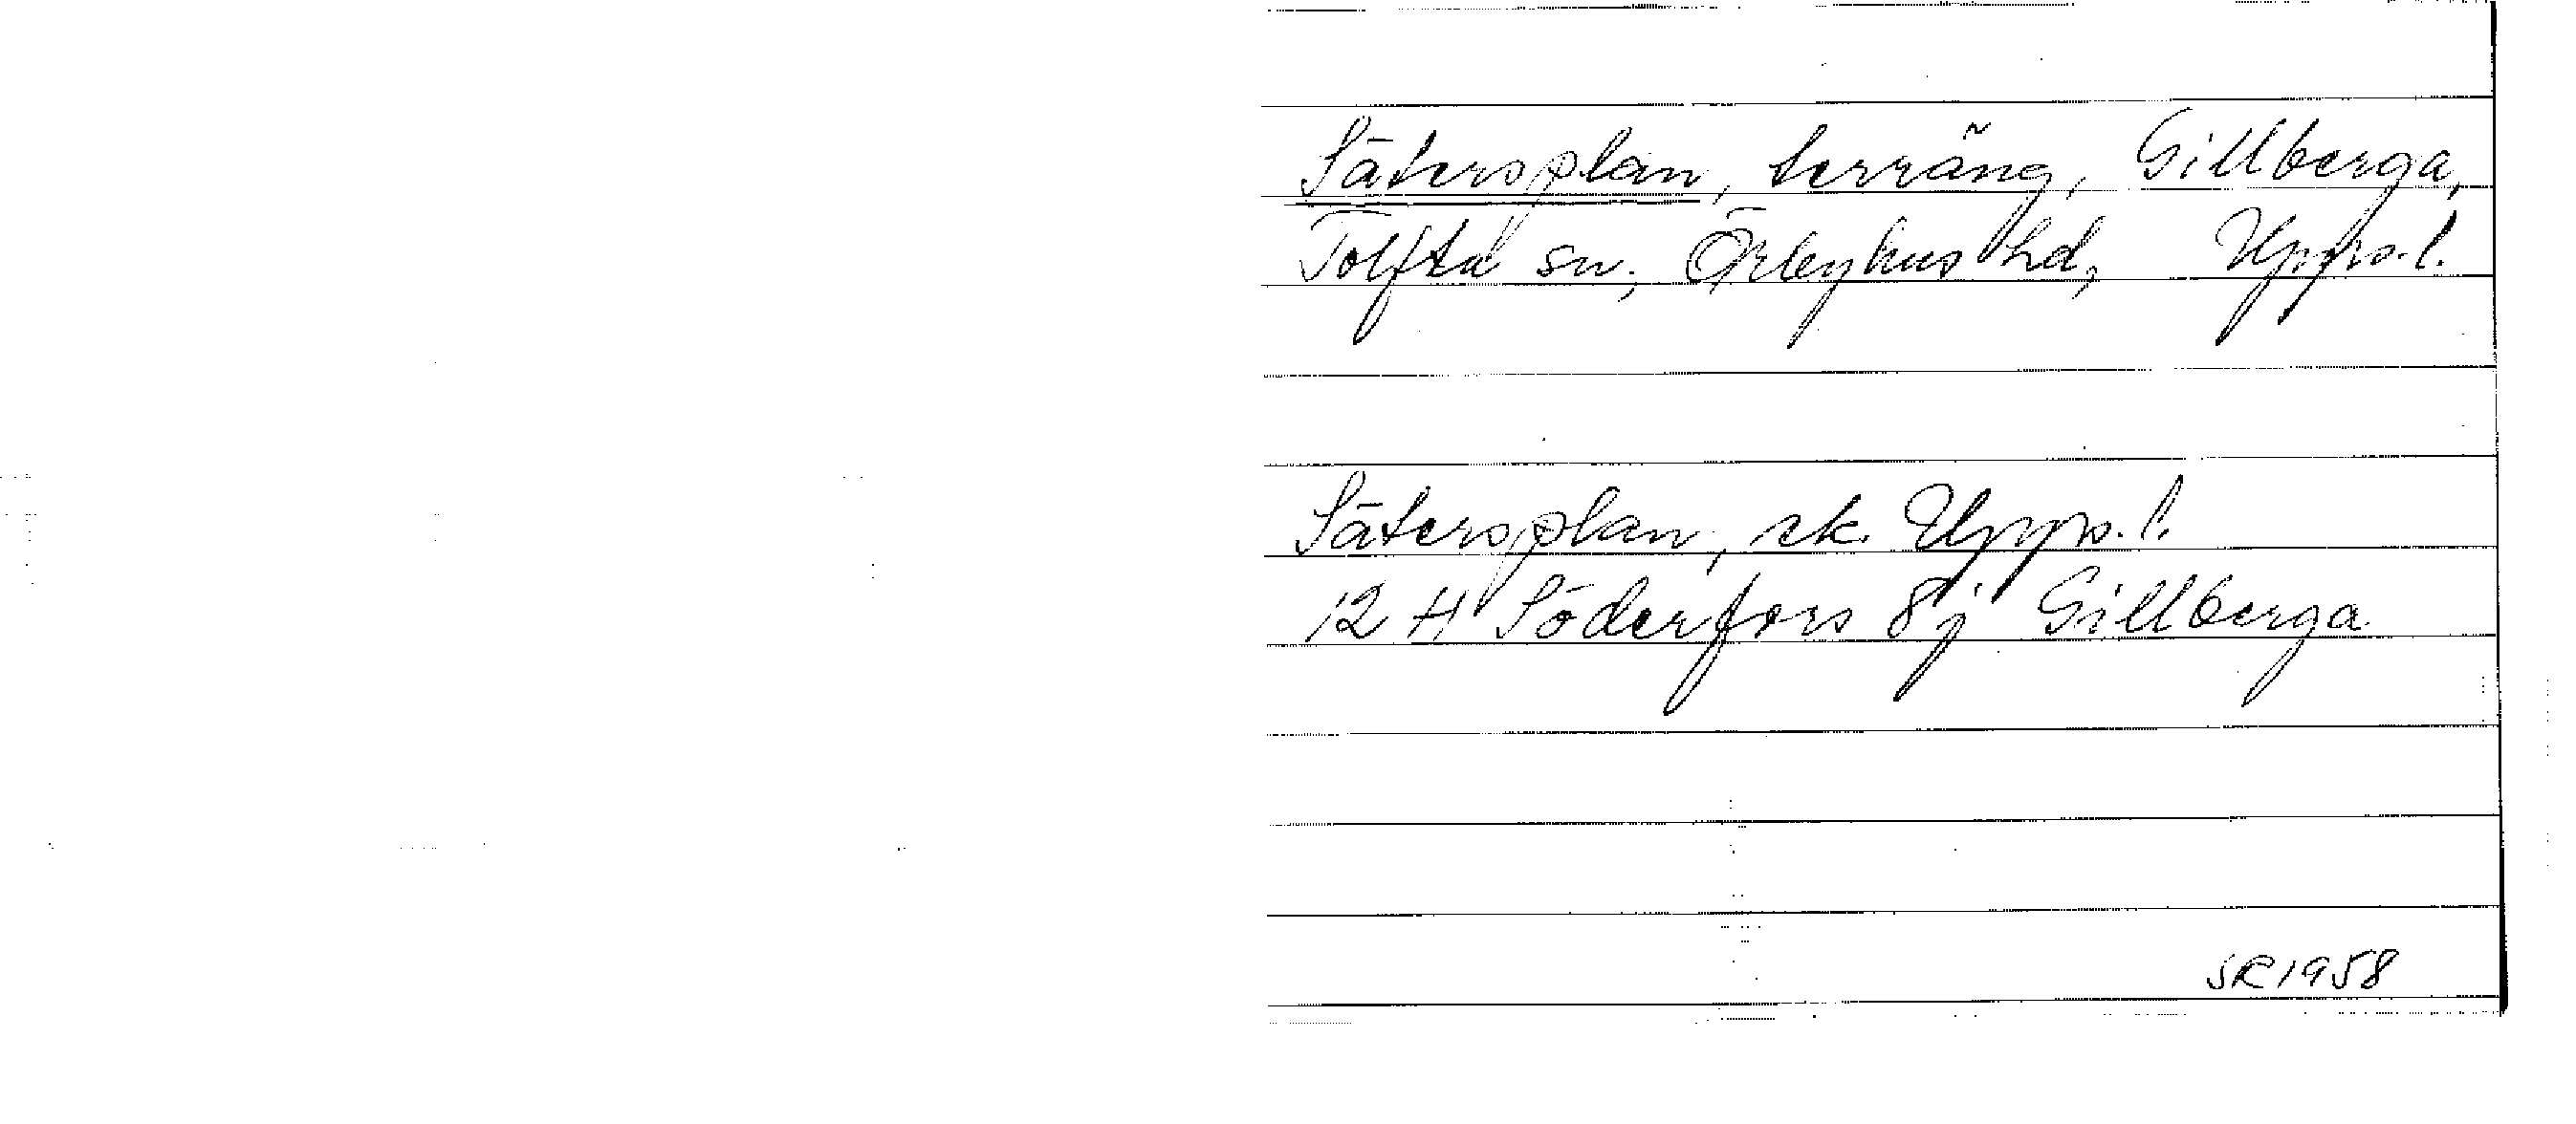 Sätersplan, terräng, Gillberga,
Tolfta sn, Örbyhus hd, Upps.l.
Sätersplan, ek. Upps.l.
12 H Söderfors 8j Gillberga
SR1958